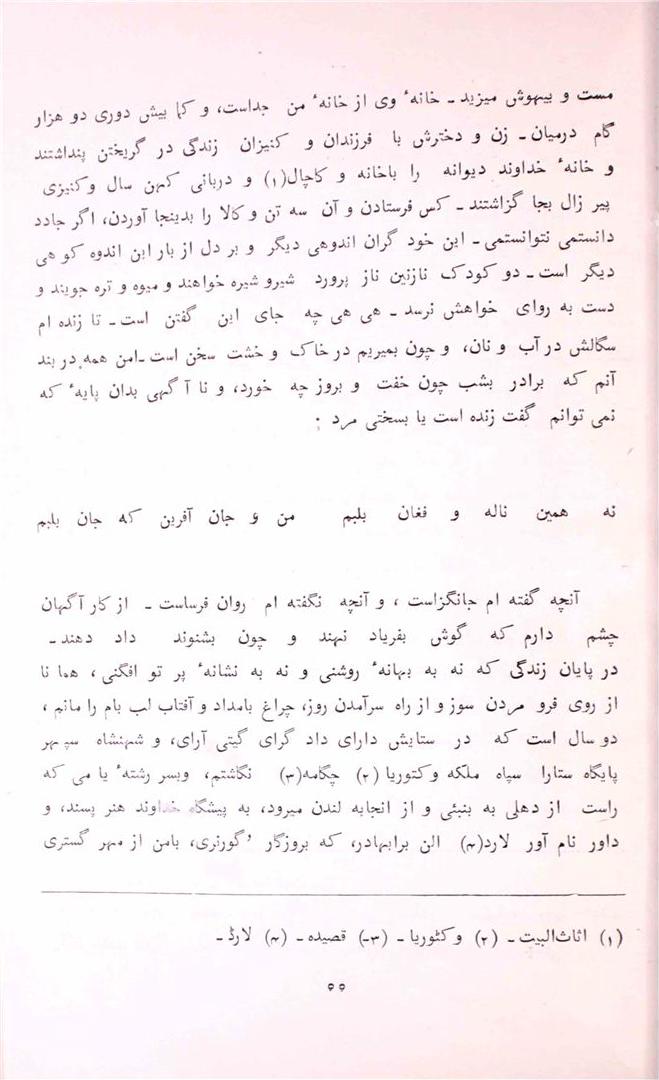 مست و بیهوش میزید ـ خانهٔ وی از خانهٔ من جداست، و کما بیش دوری دو هزار
گام درمیان ـ زن و دخترش با فرزندان و کنیزان زندگی در گریختن پنداشتند
و خانهٔ خداوند دیوانه را باخانه و کاچال(۱) و دربانی کهن سال وکنیزی
پیر زال بجا گزاشتند ـ کس فرستادن و آن سه تن و کالا را بدینجا آوردن، اگر جادد
دانستمی نتوانستمی ـ این خود گران اندوهی دیگر و بر دل از بار این اندوه کوهی
دیگر است ـ دو کودک نازنین ناز پرورد شیرو شیره خواهند و میوه و تره جویند و
دست به روای خواهش نرسد ـ هی هی چه جای این گفتن است ـ تا زنده ام
سگالش در آب و نان، و چون بمیریم در خاک و خشت سخن است ـ امن همه در بند
آنم که برادر بشب چون خفت و بروز چه خورد، و نا آگهی بدان پایهٔ که
نمی توانم گفت زنده است یا بسختی مرد :
نه همین ناله و فغان بلبم من و جان آفرین که جان بلبم
آنچه گفته ام جانگزاست ، و آنچه نگفته ام روان فرساست ـ از کار آگهان
چشم دارم که گوش بفریاد نهند و چون بشنوند داد دهند ـ
در پایان زندگی که نه به بهانهٔ روشنی و نه به نشانهٔ پر تو افگنی ، هما نا
از روی فرو مردن سوز و از راه سرآمدن روز، چراغ بامداد و آفتاب لب بام را مانم ،
دو سال است که در ستایش دارای داد گرای گیتی آرای، و شهنشاه سپهر
پایگاه ستارا سپاه ملکه وکتوریا (۲) چگامه(۳) نگاشتم، وبسر رشتهٔ یا می که
راست از دهلی به بنبئی و از انجابه لندن میرود، به پیشگاه خداوند هنر پسند، و
داور نام آور لارد(۴) الن برابهادر، که بروزگار گورنری، بامن از مهر گستری
(۱) اثاث‌البیت ـ (۲) وکٹوریا ـ (۳ـ) قصیده ـ (۴) لارڈ ـ
۵۵